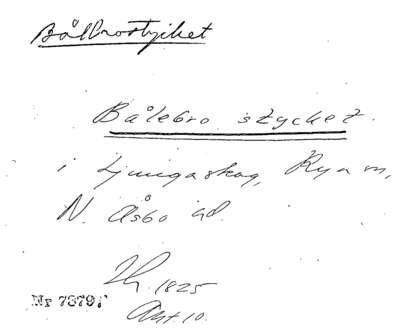 Bålbrostycket
Bålebro stycket.
i Ljungaskog, Rya sn,
N. Åsbo hd.
Lh. 1825
Akt. 10.
Nr 7379